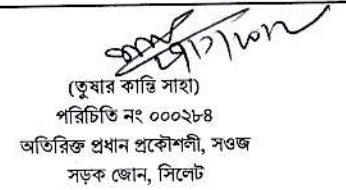 (তুষার কান্তি সাহা)
পরিচিতি নং ০০০২৮৪
অতিরিক্ত প্রধান প্রকৌশলী, সওজ
সড়ক জোন, সিলেট